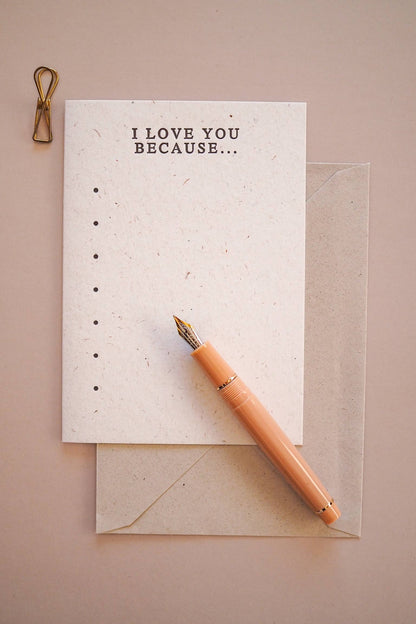 I LOVE YOU
BECAUSE...